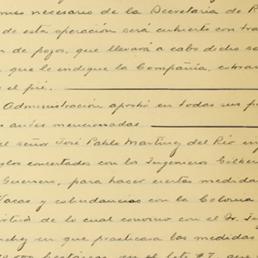 necesario de la Secretaría de R
de esta operación será cubierto con tra
de pozos, que llevará a cabo dicho s
que le indique la Compañía, cobran
el pié.
Administración aprobó en todas sus p
antes mencionadas.
el señor José Pablo Martínez del Río in
glos concertados con los Ingenieros Gilber
Guerrero, para hacer ciertas medida
Vacas y colindancias con la Colonia
virtud de lo cual convino con el Sr. In
en que practicara las medidas
hectáreas en el lote 27, que